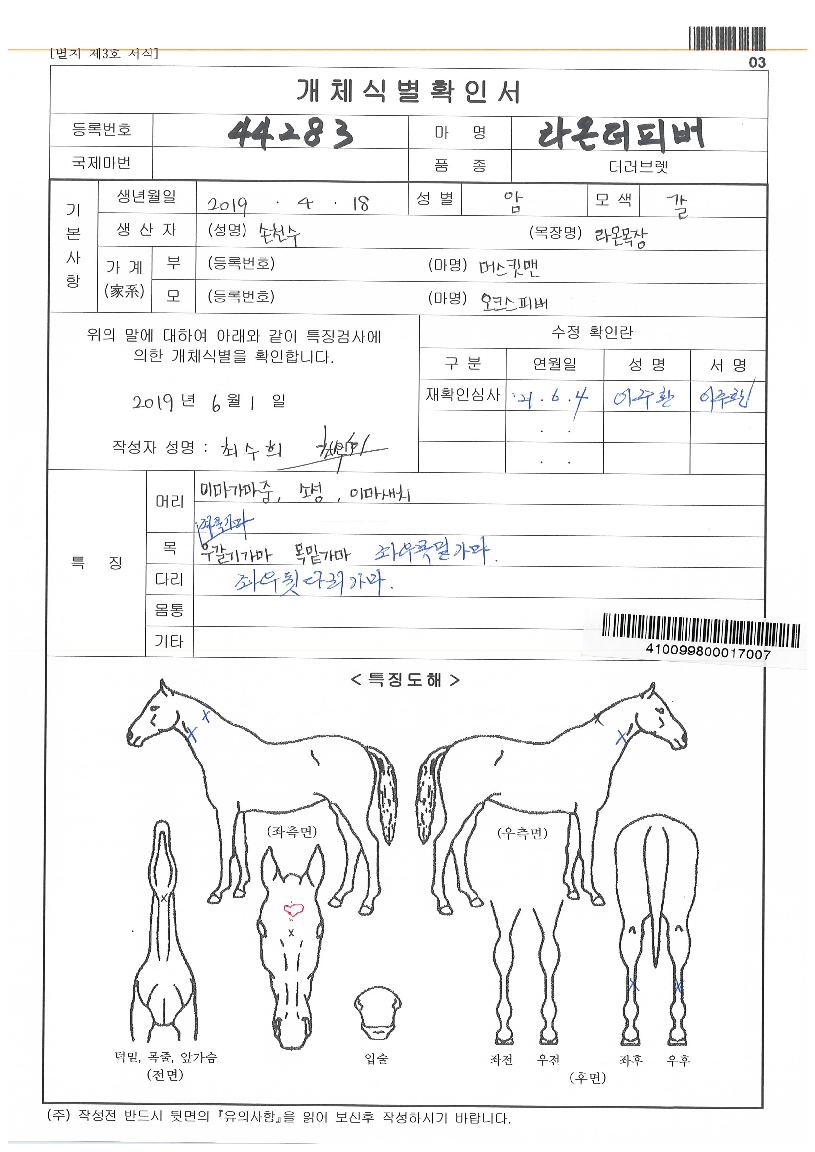 [별지 제3호 서식]
03
개체식별확인서
등록번호 44283 마 명 라온더피버
국제마번 품 종 더러브렛
기본사항
생년월일 2019 . 4 . 18 성 별 암 모 색 갈
생 산 자 (성명) 손천수 (목장명) 라온목장
가 계 (家系)
부 (등록번호) (마명) 머스킷맨
모 (등록번호) (마명) 오크스피버
위의 말에 대하여 아래와 같이 특징검사에
의한 개체식별을 확인합니다.
2019 년 6 월 1 일
작성자 성명 : 최수희
수정 확인란
구 분 연월일 성 명 서 명
재확인심사 '21 . 6 . 4 이주환 이주환
. .
. .
특 징
머리 이마가마중, 소성, 이마새치
목 우갈기가마 목밑가마
다리 좌우뒷다리가마.
몸통
기타
410099800017007
< 특징도해 >
(좌측면) (우측면)
턱밑, 목줄, 앞가슴
(전면)
입술
좌전 우전 좌후 우후
(후면)
(주) 작성전 반드시 뒷면의 『유의사항』을 읽어 보신후 작성하시기 바랍니다.